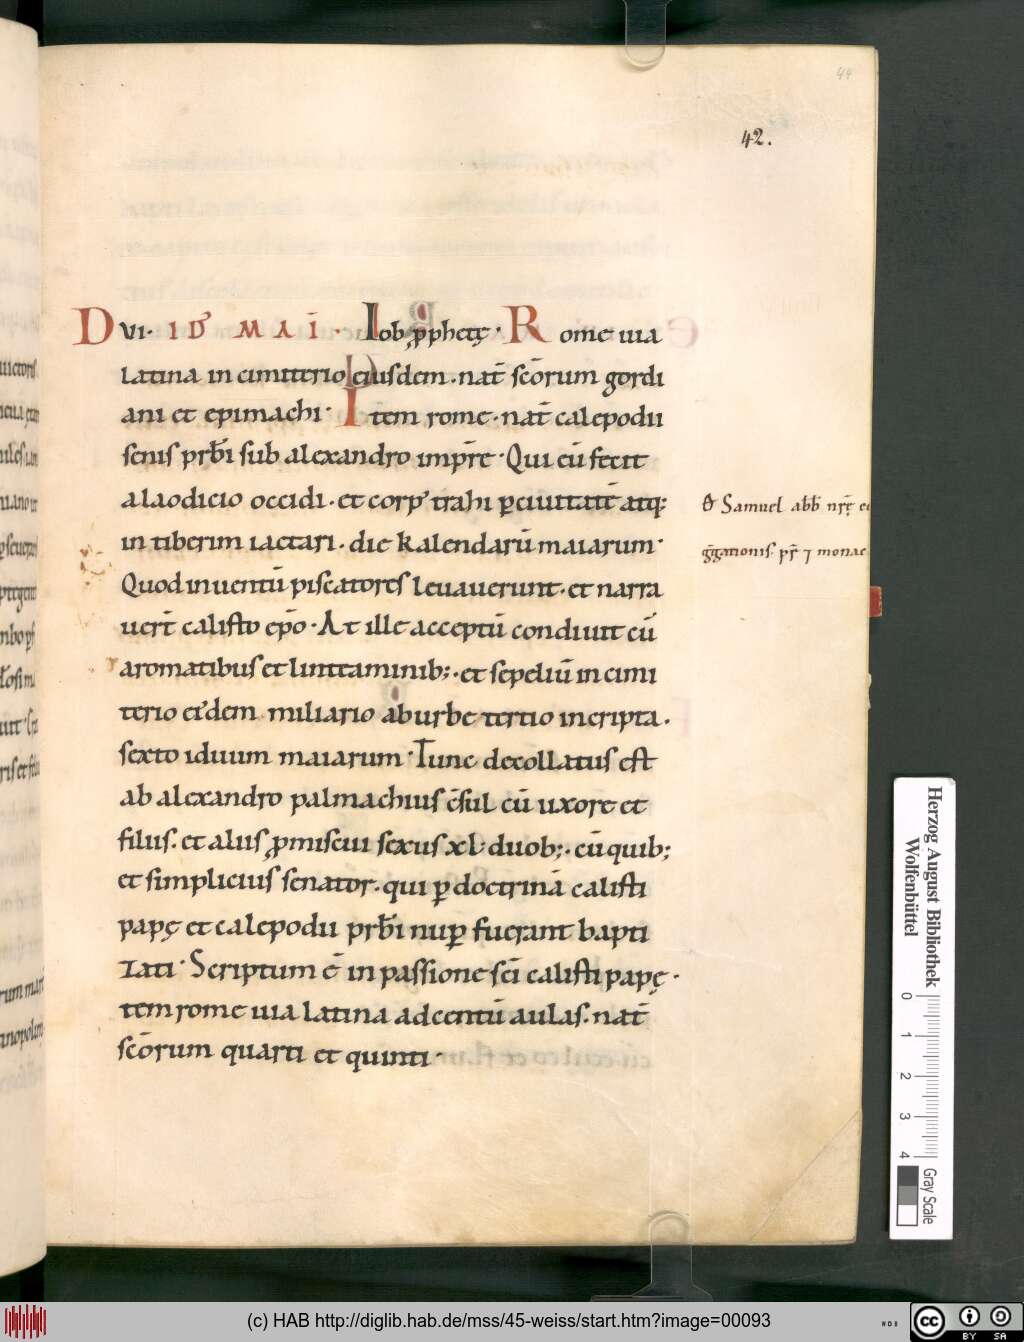 44
42.
D VI· ID̄ MAI̅· Iob ꝓphetę· Rome uia
latina in cimiterio eiusdem. nat̄ sc̄orum gordi
ani et epimachi· Item rome· nat̄ calepodii
senis prb̄i sub alexandro imp̄re· Qui cū fecit
alaodicio occidi· et corp' trahi ꝑ ciuitatē atq;
in tiberim iactari· die kalendarū maiarum·
Quod inuentū piscatores leuauerunt· et narra
uer̄ calisto ep̄o· At ille acceptū condiuit cū
aromatibus et linteaminib;· et sepeliū in cimi
terio ei'dem miliario ab urbe tertio in cripta.
sexto iduum maiarum· Tunc decollatus est
ab alexandro palmachius c̄sul cū uxore et
filiis· et aliis ꝓmiscui sexus xl· duob;· cū quib;
et simplicius senator· qui ꝑ doctrinā calisti
papę et calepodii prb̄i nuꝑ fuerant bapti
zati· Scriptum ē in passione sc̄i calisti papę·
tem rome uia latina ad centū aulas· nat̄
sc̄orum quarti et quinti·
Samuel abb̄ nr̄ę
ḡgationis· pr̄ ⁊ monac
uictoris
Herzog August Bibliothek
Wolfenbüttel
0 1 2 3 4
Gray Scale
(c) HAB http://diglib.hab.de/mss/45-weiss/start.htm?image=00093
WDB
cc BY SA